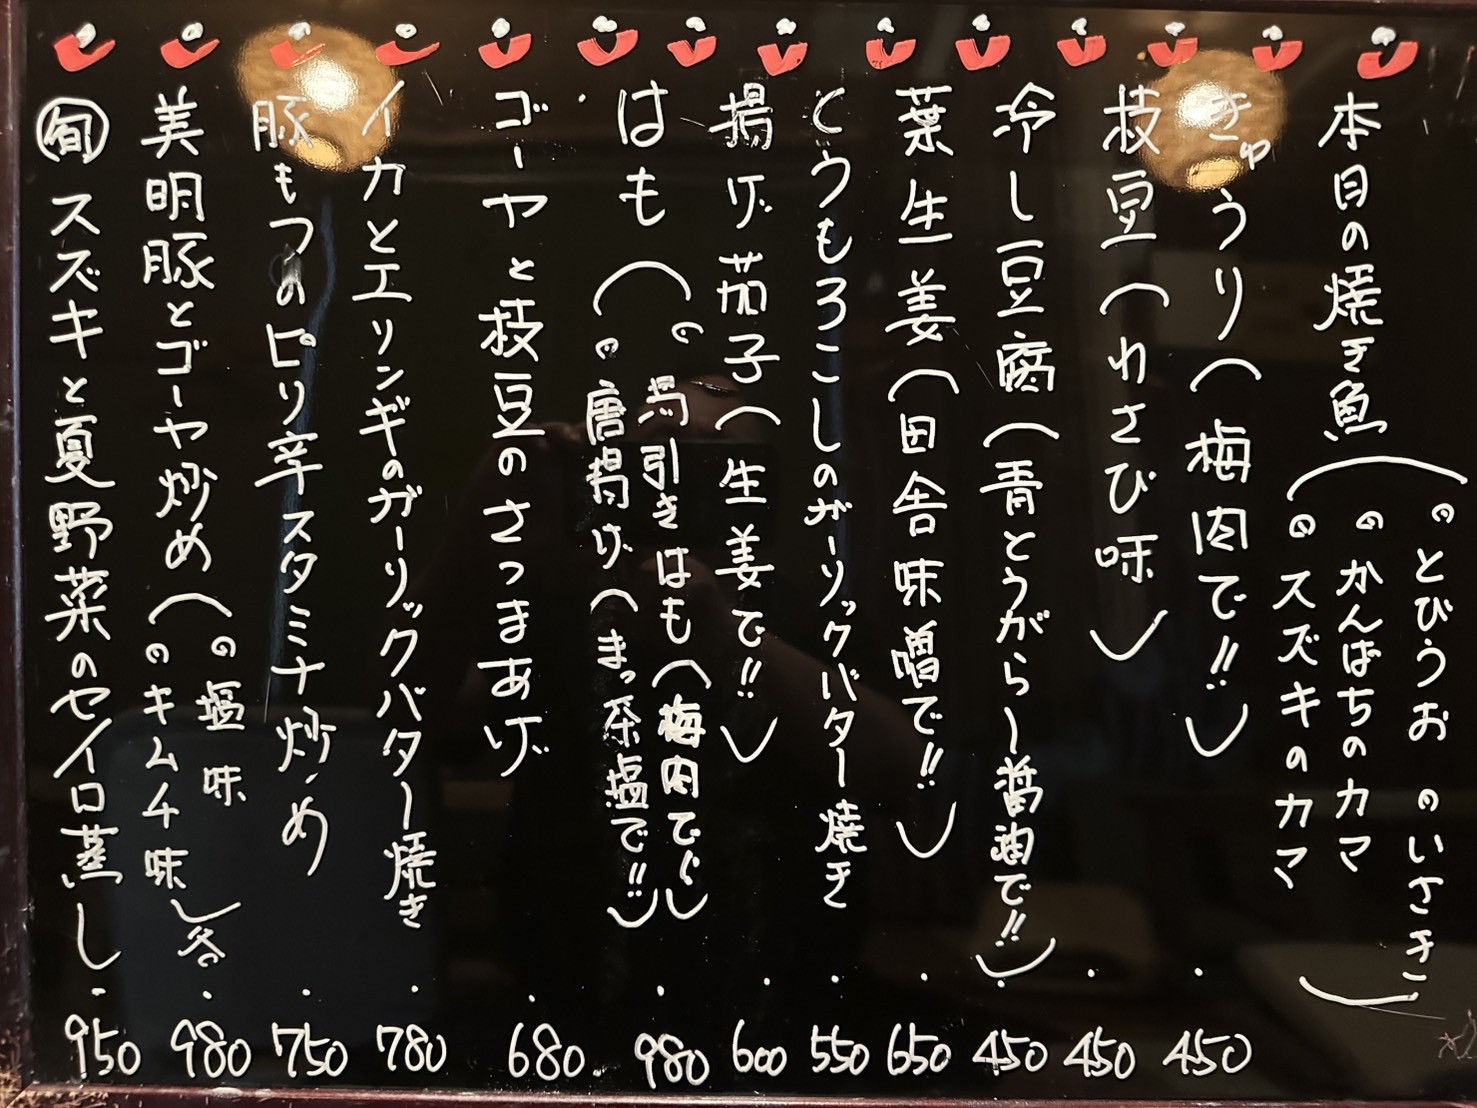 本日の焼き魚(
・とびうお ・いさき
・かんぱちのカマ
・スズキのカマ
)
きゅうり(梅肉で!!)・450
枝豆(わさび味)・450
冷し豆腐(青とうがらし醤油で!!)・450
葉生姜(田舎味噌で!!)・650
とうもろこしのガーリックバター焼き・550
揚げ茄子(生姜で!!)・600
はも(
・湯引きはも(梅肉で)
・唐揚げ(まっ茶塩で!!)
)・980
ゴーヤと枝豆のさつまあげ・680
イカとエリンギのガーリックバター焼き・780
豚もつのピリ辛スタミナ炒め・750
美明豚とゴーヤ炒め(
・塩味
・キムチ味
)各・980
旬 スズキと夏野菜のセイロ蒸し・950